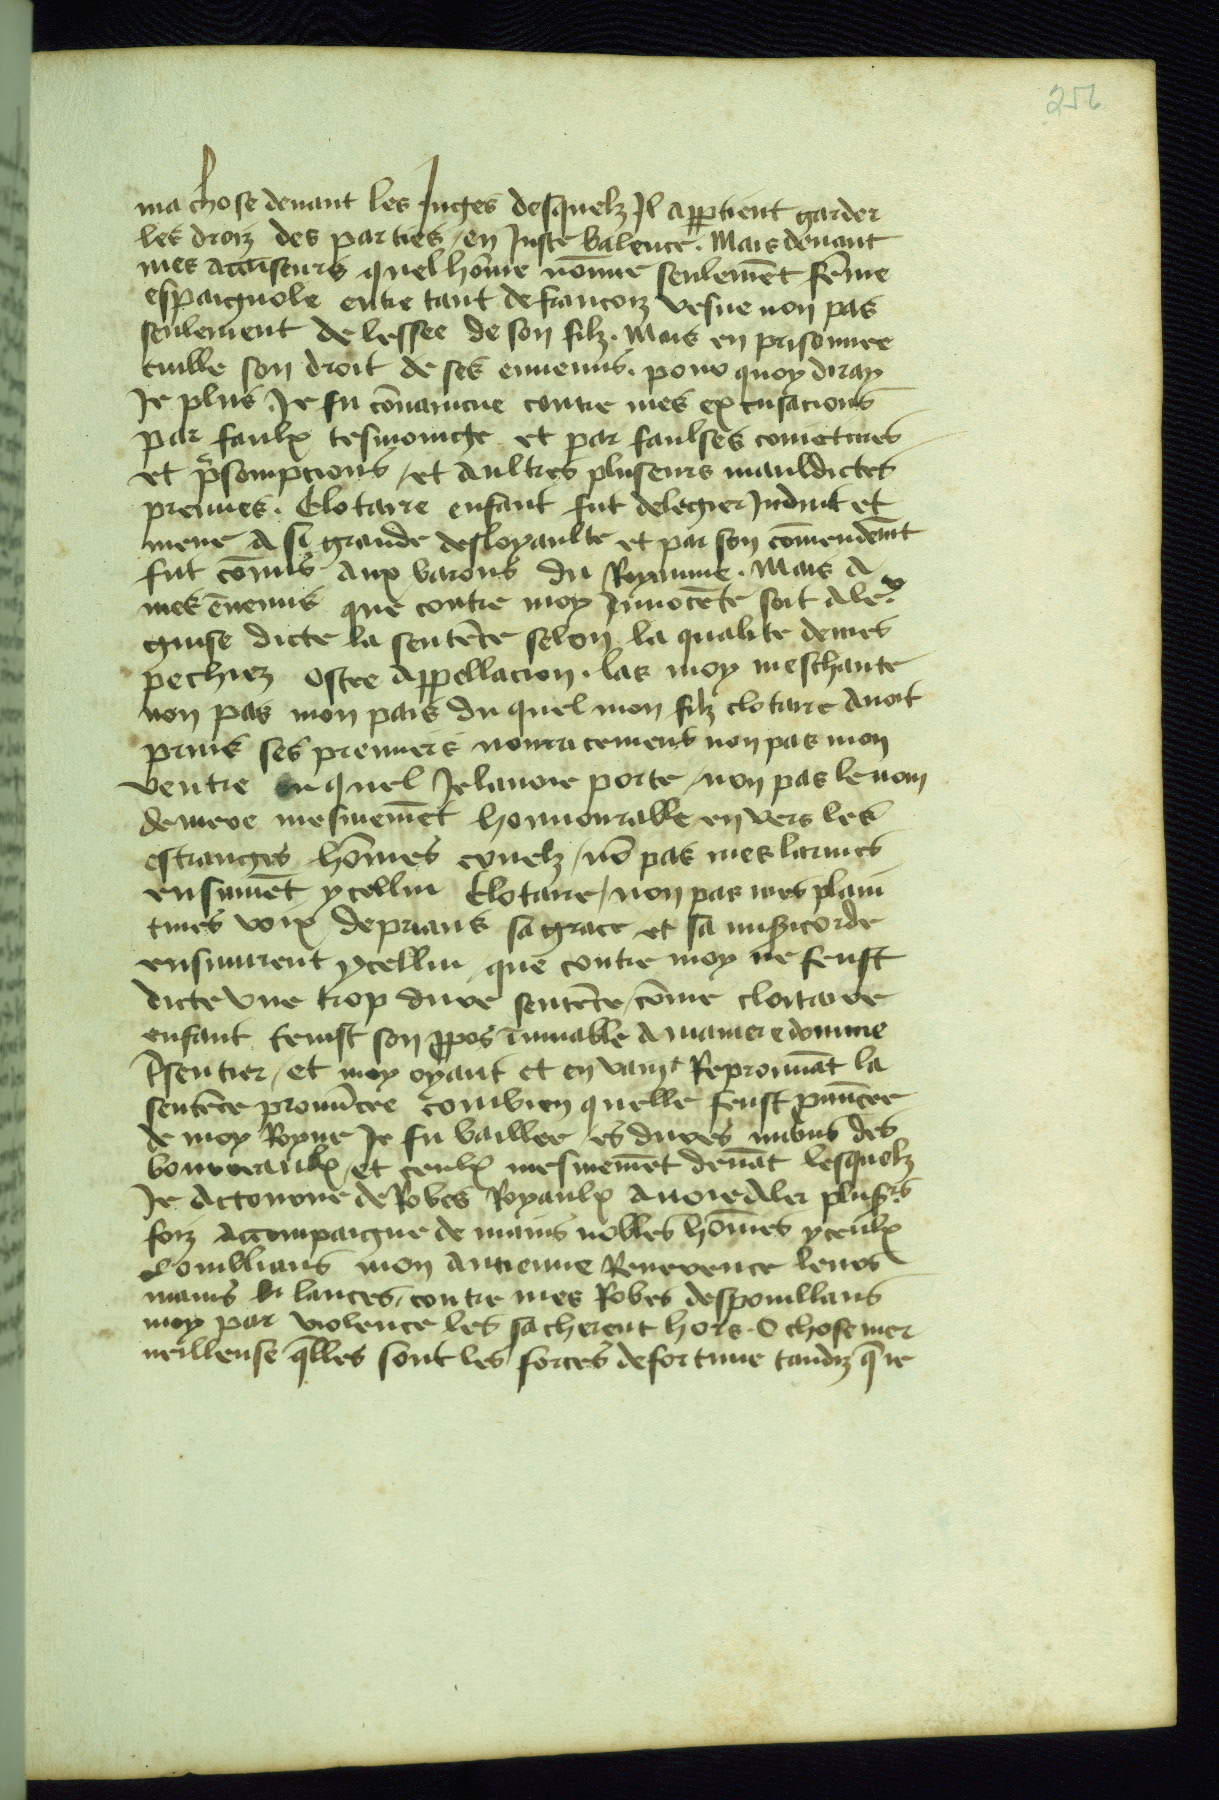 256
ma chose deuant les Juges desquelz Jl appartient garder
les droiz des parties / en Juste balence . Mais deuant
mes accuseurs quel hōme nōmme seulemēt fēme
espaignole entre tant de francoiz vefue non pas
seulement de lessee de son filz . Mais en prisonnee
son droit de ses ennemis . pour quoy diray
Je plus . Je fu cōuaincue contre mes excusacions
par faulx tesmoinge et par faulses coniectures
et p̄sompcions / et aultres pluseurs mauldictes
preuues . Clotaire enfant fut delegier Induit et
mene a si grande desloyaulte et par son cōmendemt
fut cōmis aux barons du Royaume . Mais a
mes ēnemis que contre moy Jnnocēte soit a leur
guise dicte la sentēce selon la qualite de mes
pechiez ostee appellacion . las moy meschante
non pas mon pais du quel mon filz clotaire auoit
prins ses premiers nourricemens non pas mon
ventre ou quel Je lauoie porte / non pas le nom
de mere mesmemēt honnourable en vers les
estranges hōmes cruelz / nō pas mes larmes
ensuiuēt ycellui Clotaire / non pas mes plain
tiues voix deprians sa grace et sa misericorde
ensuiuirent ycellui que contre moy ne feust
dicte vne trop dure sentēce / cōme clotaire
enfant tenist son ppos muable a maniere domme
sentier / et moy oyant et en vain Reprouuāt la
sentēce pronūcee combien quelle feust prnūcee
de moy Royne Je fu baillee es dures mains des
bourreaulx / et ceulx mesmemēt deuāt lesquelz
Je actournee de Robes Royaulx auoie aler plusrs
foiz accompaigne de mains nobles hōmes yceulx
oomblians mon ancienne Reuerence leurs
mains lancees / contre mes Robes despouillans
moy par violence les sacherent hors . O chose mer
ueilleuse q̄lles sont les forces de fortune tandiz q̄ ie